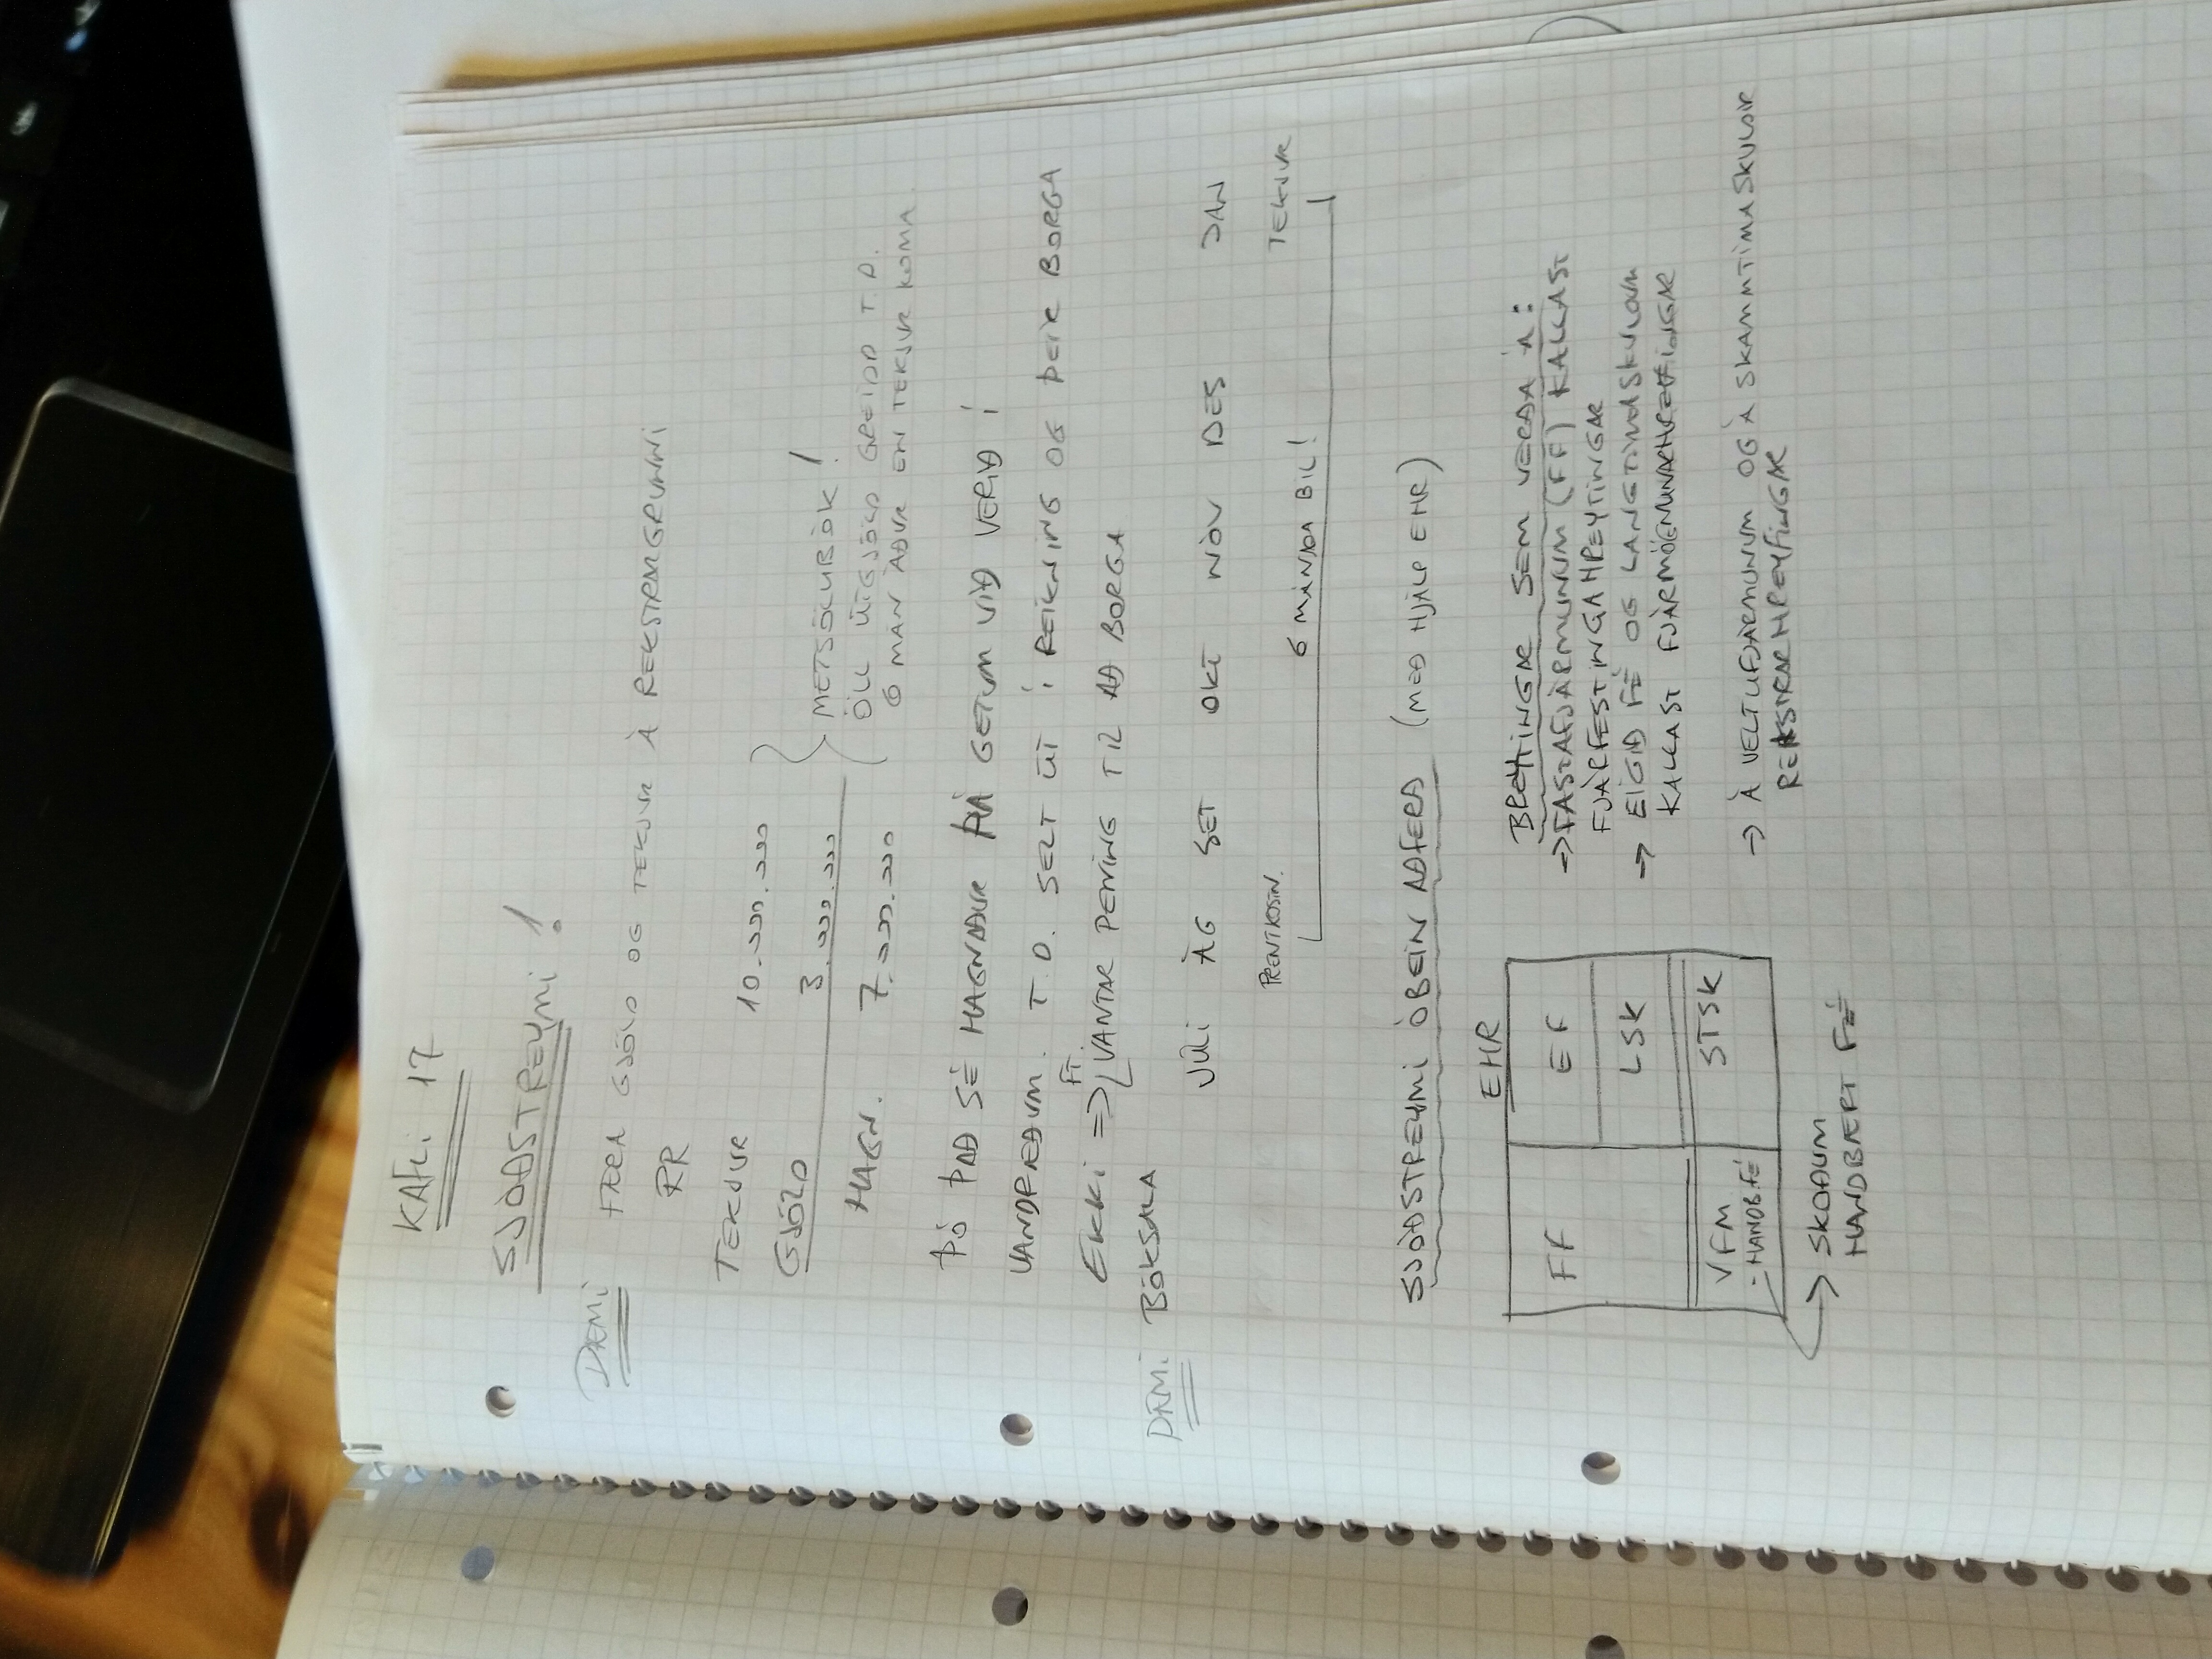 KAFLi 17
SJÓÐSTREYMi !
DÆMi FÆRA GJÖLD OG TEKJUR Á REKSTRARGRUNNi
RR
TEKJUR 10.000.000
GJÖLD 3.000.000
HAGN. 7.000.000
METSÖLUBÓK!
ÖLL ÚTGJÖLD GREIDD T.D.
6 MÁN ÁÐUR EN TEKJUR KOMA.
ÞÓ ÞAÐ SÉ HAGNAÐUR ÞÁ GETUM VIÐ VERIÐ Í
VANDRÆÐUM. T.D. SELT ÚT Í REIKNING OG ÞEIR BORGA
EKKi => VANTAR PENING TIL AÐ BORGA
DÆMi BÓKSALA
JÚLI ÁG SET OKT NÓV DES JAN
PRENTKOSTN. TEKJUR
6 MÁNAÐA BIL!
SJÓÐSTREYMi ÓBEIN AÐFERÐ (MEÐ HJÁLP EHR)
EHR
FF EF
LSK
VFM STSK
- HANDB.FÉ
-> SKOÐUM
HANDBÆRT FÉ
BREYTINGAR SEM VERÐA Á:
-> FASTAFJÁRMUNUM (FF) KALLAST
FJÁRFESTINGAHREYFINGAR
-> EIGIÐ FÉ OG LANGTÍMASKULDUM
KALLAST FJÁRMÖGNUNARHREYFINGAR
-> Á VELTUFJÁRMUNUM OG Á SKAMMTÍMASKULDIR
REKSTRARHREYFINGAR